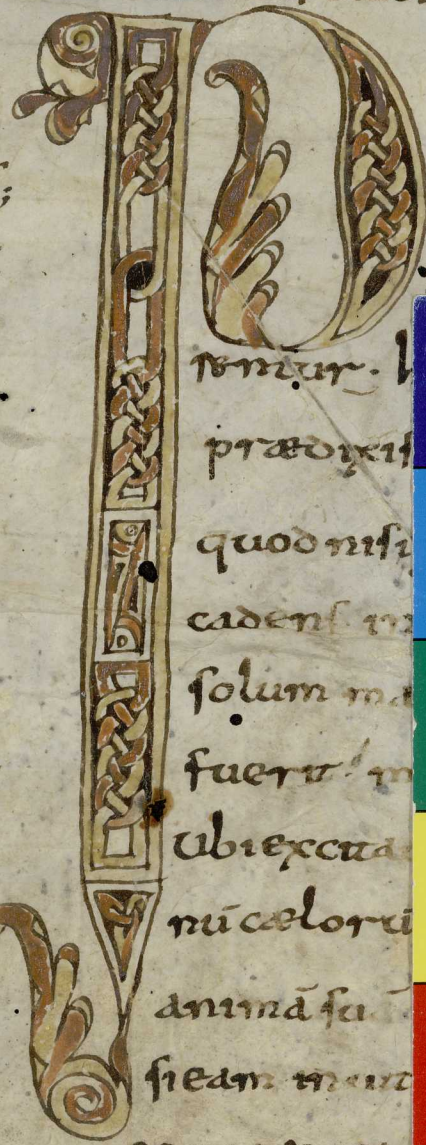 P
semur. 
prædixis
quod nisi
cadens in
solum ma
fuerit. m
ubi excita
nū cælorū
animā su
si eam in uit